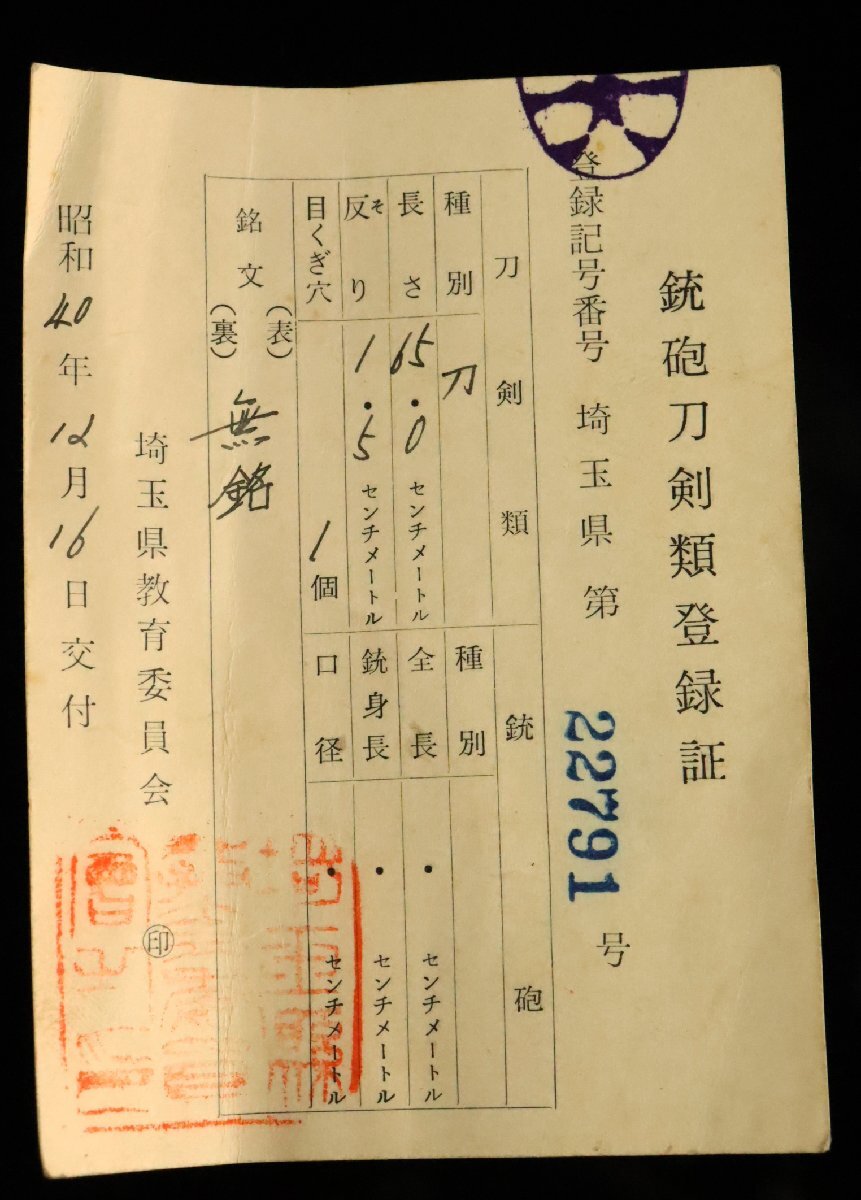 銃砲刀剣類登録証
登録記号番号 埼玉県 第 22791 号
刀剣類
種別 刀
長さ 65.0 センチメートル
反り そ 1.5 センチメートル
目くぎ穴 1個
銃砲
種別
全長 ・ センチメートル
銃身長 ・ センチメートル
口径 ・ センチメートル
銘文 (表) (裏) 無銘
埼玉県教育委員会 ㊞
昭和40年12月16日交付